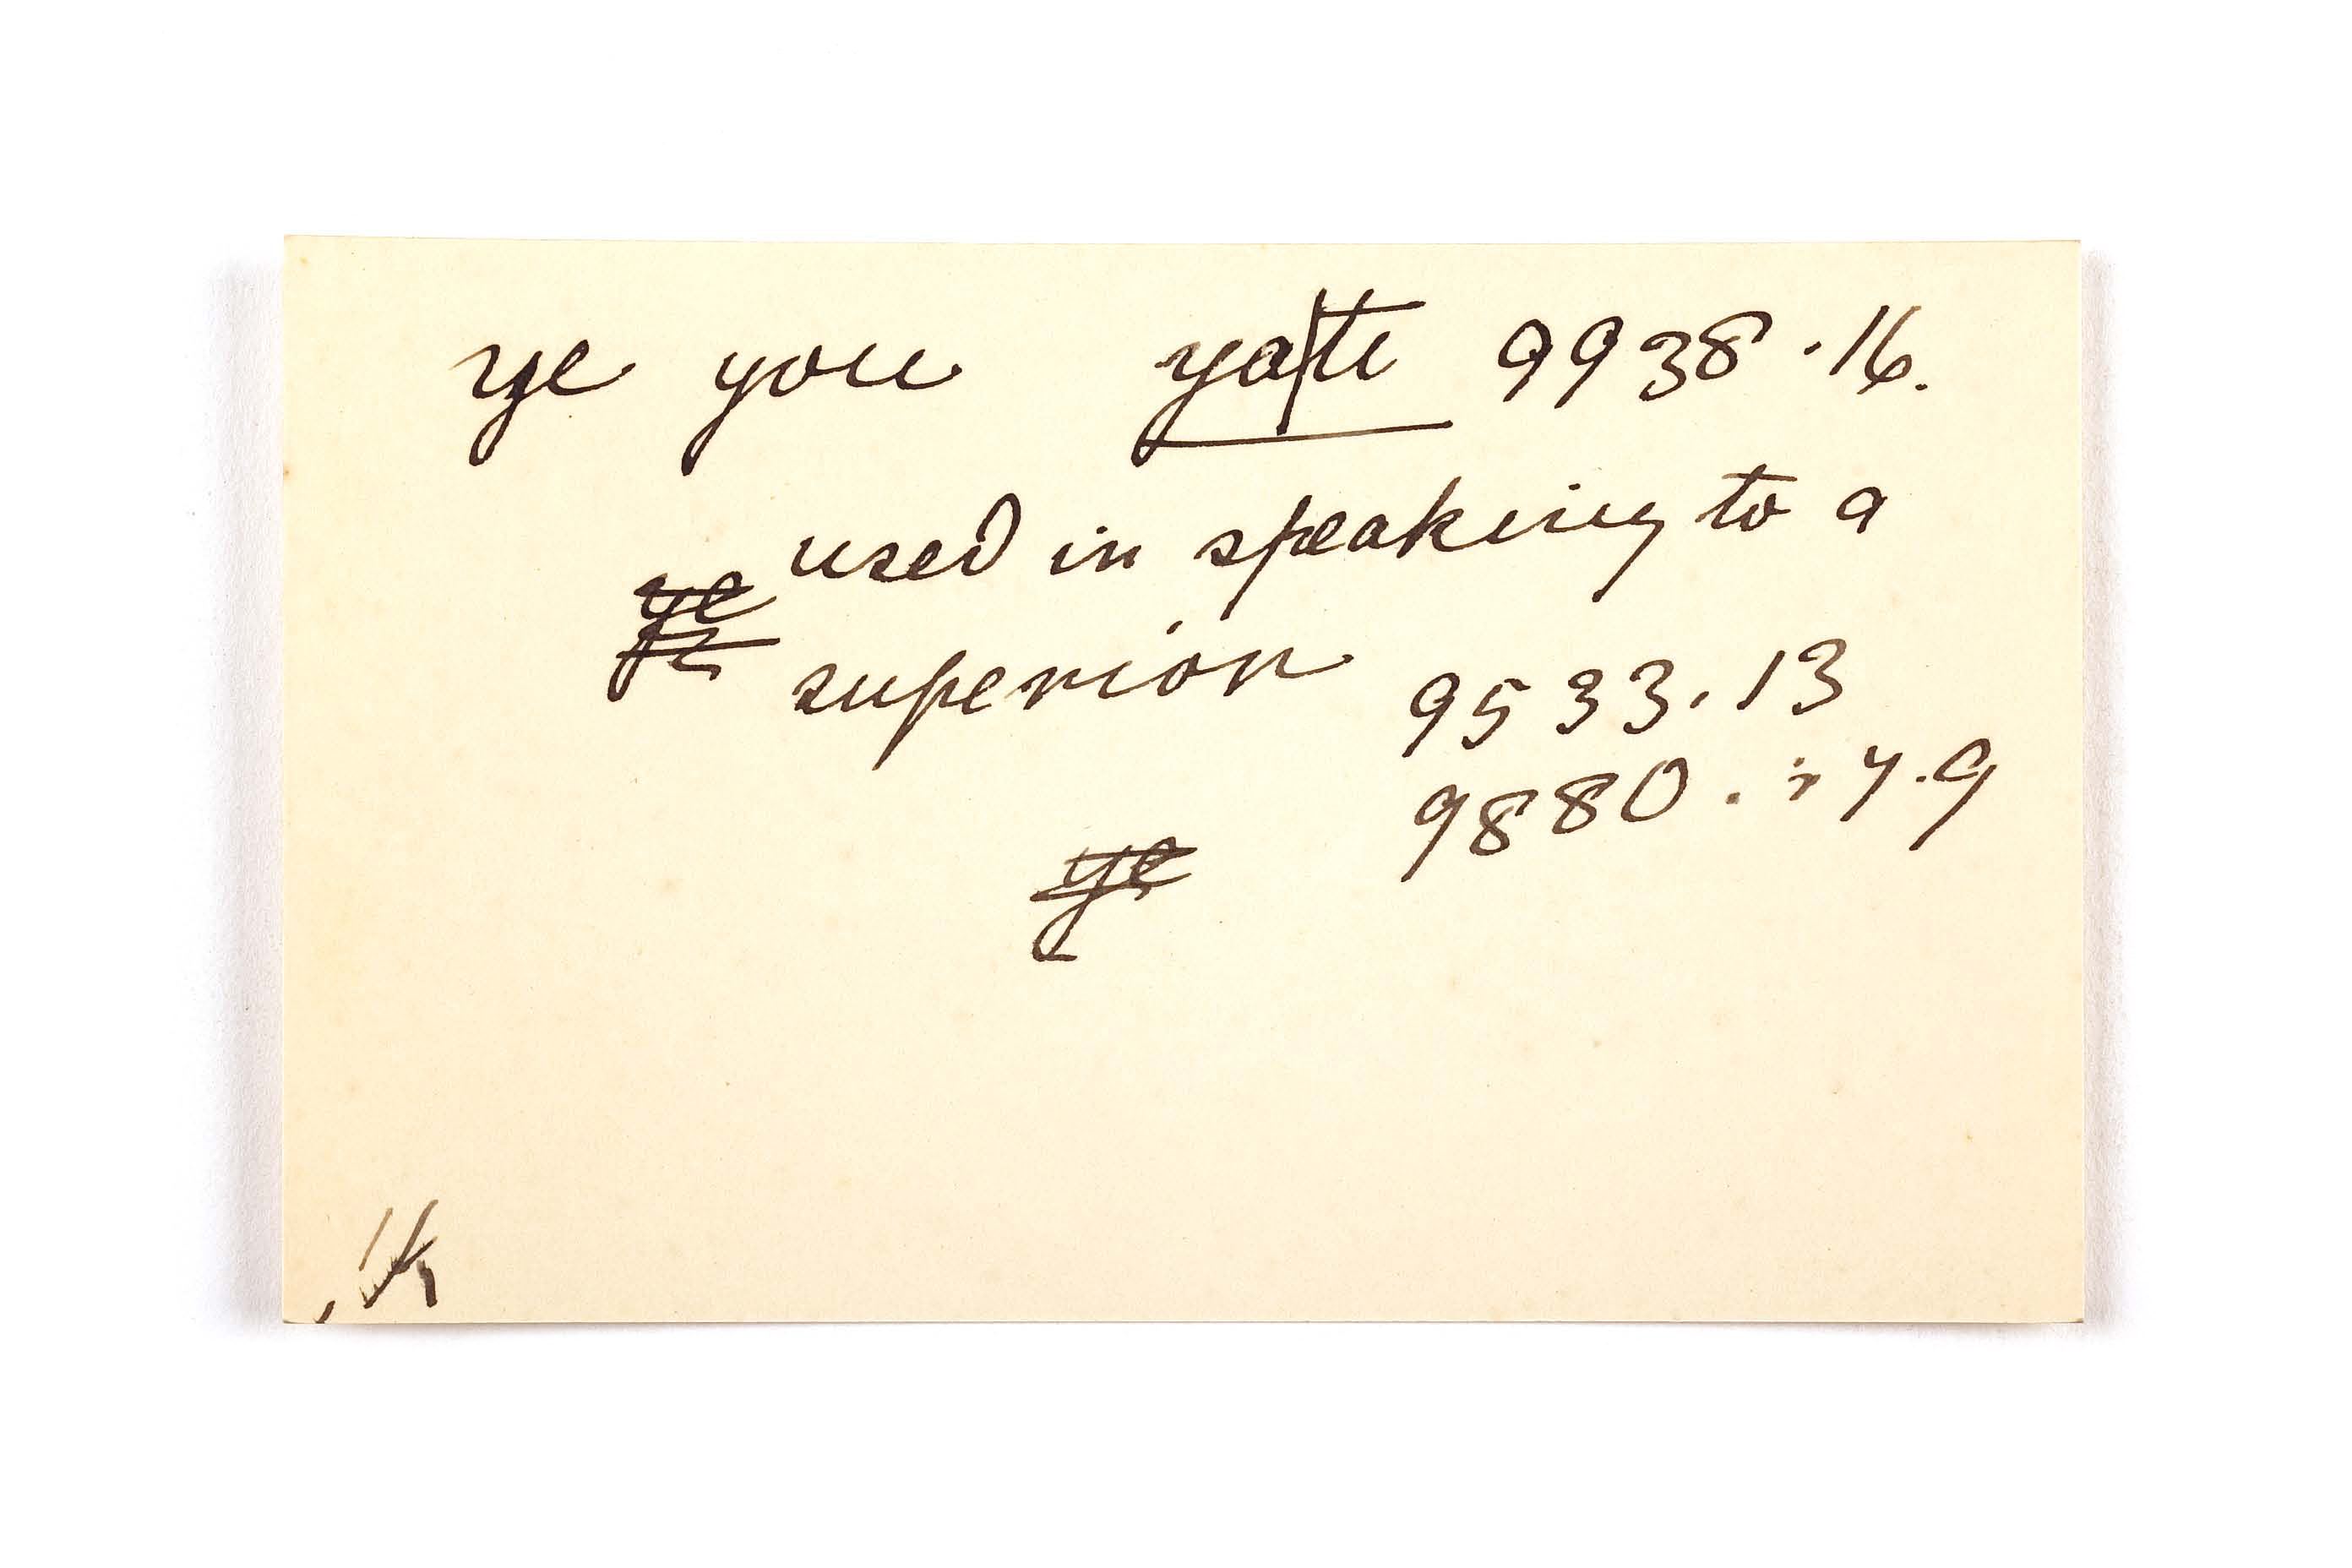 ye you ya|te 9938.16.
used in speaking to a
ye
superior 9533.13
9880. 7.9
ye